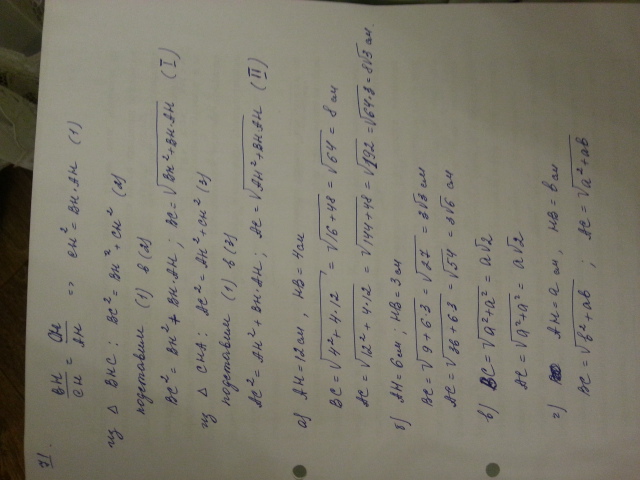 71.
BH/CH = CH/AH => CH² = BH·AH (1)
из △ BHC: BC² = BH² + CH² (2)
подставим (1) в (2)
BC² = BH² + BH·AH; BC = √BH²+BH·AH (I)
из △ CHA: AC² = AH² + CH² (3)
подставим (1) в (3)
AC² = AH² + BH·AH; AC = √AH²+BH·AH (II)
а) AH = 12 см, HB = 4 см
BC = √4²+4·12 = √16+48 = √64 = 8 см
AC = √12²+4·12 = √144+48 = √192 = √64·3 = 8√3 см.
б) AH = 6 см; HB = 3 см
BC = √9+6·3 = √27 = 3√3 см
AC = √36+6·3 = √54 = 3√6 см
в) BC = √a²+a² = a√2
AC = √a²+a² = a√2
г) AH = a см, HB = b см
BC = √b²+ab ; AC = √a²+ab